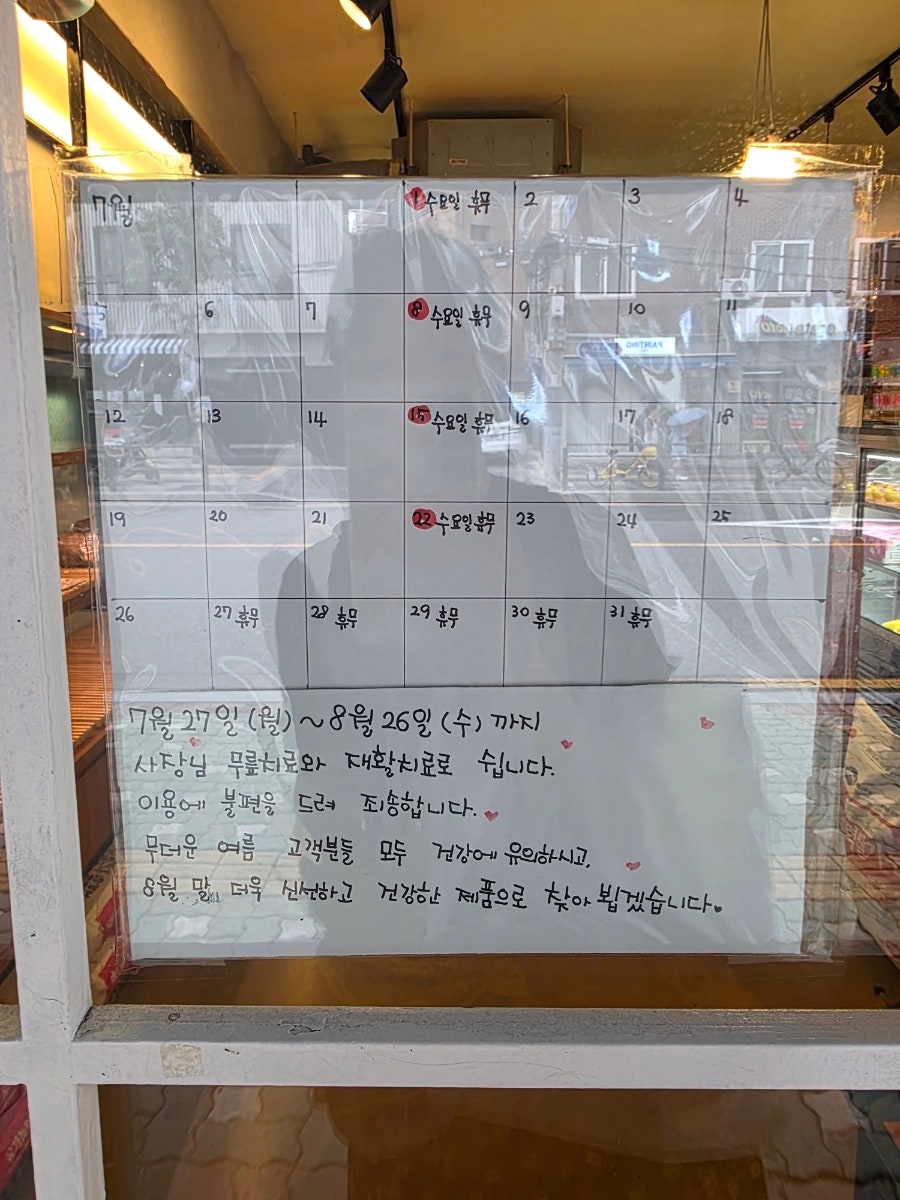 7월 1 수요일 휴무 2 3 4
5 6 7 8 수요일 휴무 9 10 11
12 13 14 15 수요일 휴무 16 17 18
19 20 21 22 수요일 휴무 23 24 25
26 27 휴무 28 휴무 29 휴무 30 휴무 31 휴무
7월 27일 (월) ~ 8월 26일 (수) 까지
사장님 무릎치료와 재활치료로 쉽니다.
이용에 불편을 드려 죄송합니다.
무더운 여름 고객분들 모두 건강에 유의하시고,
8월 말 더욱 신선하고 건강한 제품으로 찾아 뵙겠습니다.
PAINTING